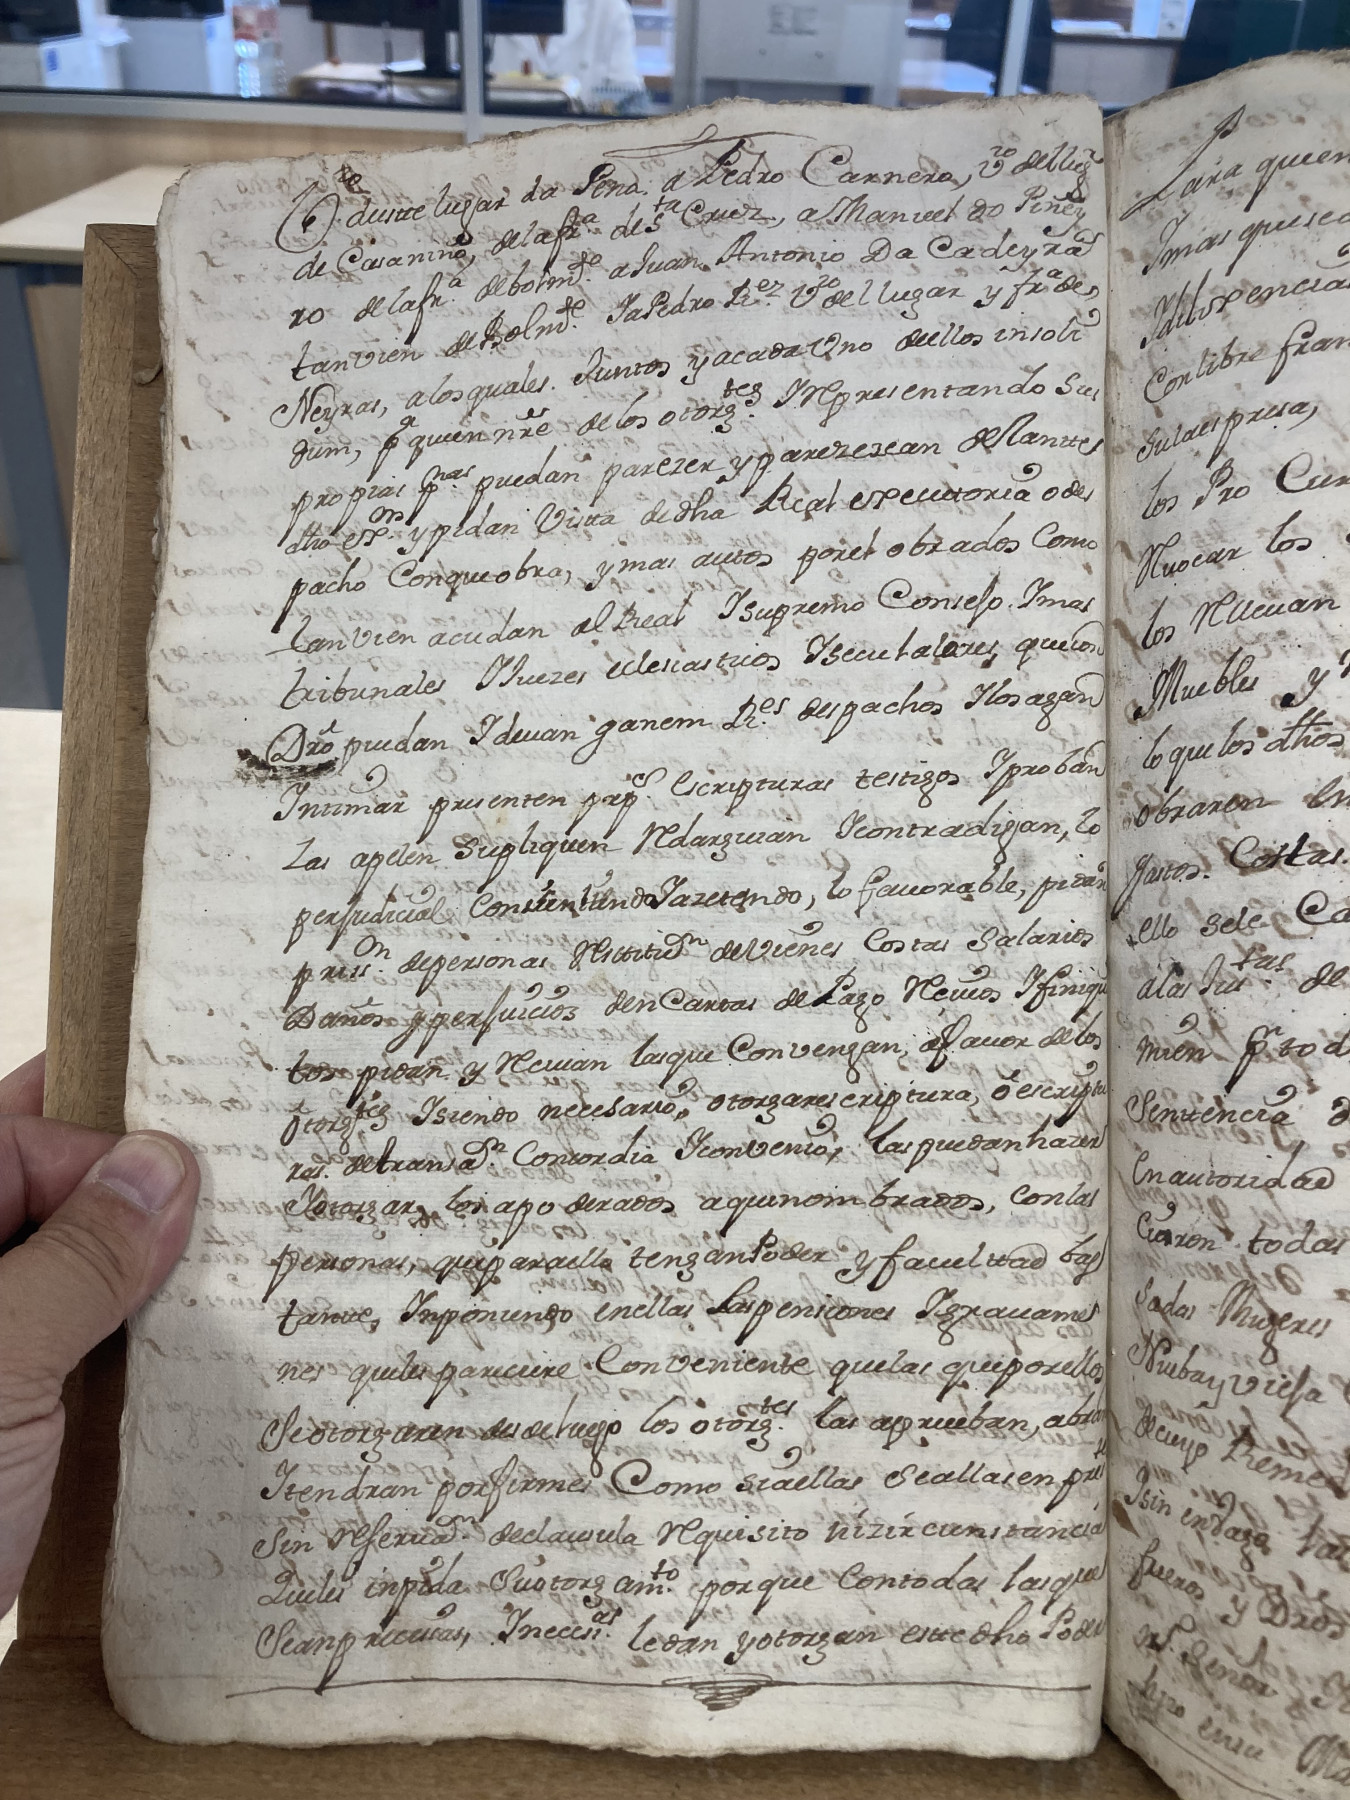 deste lugar da Pena. a Pedro Carnero, v.ro del lug.r
de Casanino, de la fr.a de S.ta Cruz, a Manuel do Piñey
ro de la fr.a de bolm.te a Juan Antonio Da Cadeyra
tanvien de Bolm.te Ja Pedro R.ez v.ro del lugar y fr.a de
Neyras, a los quales Juntos y acada Uno dellos insoli
dum, p.a quien nre de los otorg.tes Representando sus
propias p.nas puedan parezer y parezcan delantte
dho ex.on y pidan Vista de dha Real executoria o des
pacho Conque obra, y mas autos por el obrados Como
tanvien acudan al Real Isupremo Consejo Imas
tribunales IJuezes eclesiasticos Iseculalares, que con
Dro puedan Idevan ganem R.es despachos Ilos agan
Intimar presenten Escripturas testigos Iproban
zas apelen Supliquen Redarguian Icontradigan, lo
perjudicial Consintiendo Iazetendo, lo favorable, pidan
pris.on de personas Restituz.on de Vienes Costas Salarios
Daños y perjuicios den Cartas de Pago Recivos Ifiniqui
tos pidan y Recivan las que Convengan, a favor de los
otorg.tes Isiendo necesario, otorgar escriptura, o escriptu
ras. de transaz.on Concordia Iconvenio, las puedan hazer
Iotorgar, los apoderados aqui nombrados, con las
personas, que para ello tengan Poder y facultad bas
tante, Inponiendo en ellas las pensiones Igravame
nes que les pareciere Conveniente que las que por ellos
Se otorgaren desde luego los otorg.tes las aprueban, abran
Itendran por firmes Como si a ellas Se allasen pres.tes
Sin reservaz.on de clausula Requisito ni zircunstancia
Que les inpida Su otorgam.to porque Con todas las que
Sean precisas, Ineces.as le dan y otorgan este dho Poder
Para quien
Imas que sea
Idilixencias
Con libre fran
los Pro Cur
Revocar los
los Rellevan
Muebles y
lo que los dhos
obraren en
gastos. Costas.
ello sele Ca
a las Jus.tas de
mien p.r tod
Sentencia
en autoridad
Ciaron todas
Sadas Mugeres
Nueba y Vieja
de cuyo Remed
fueros y Dros